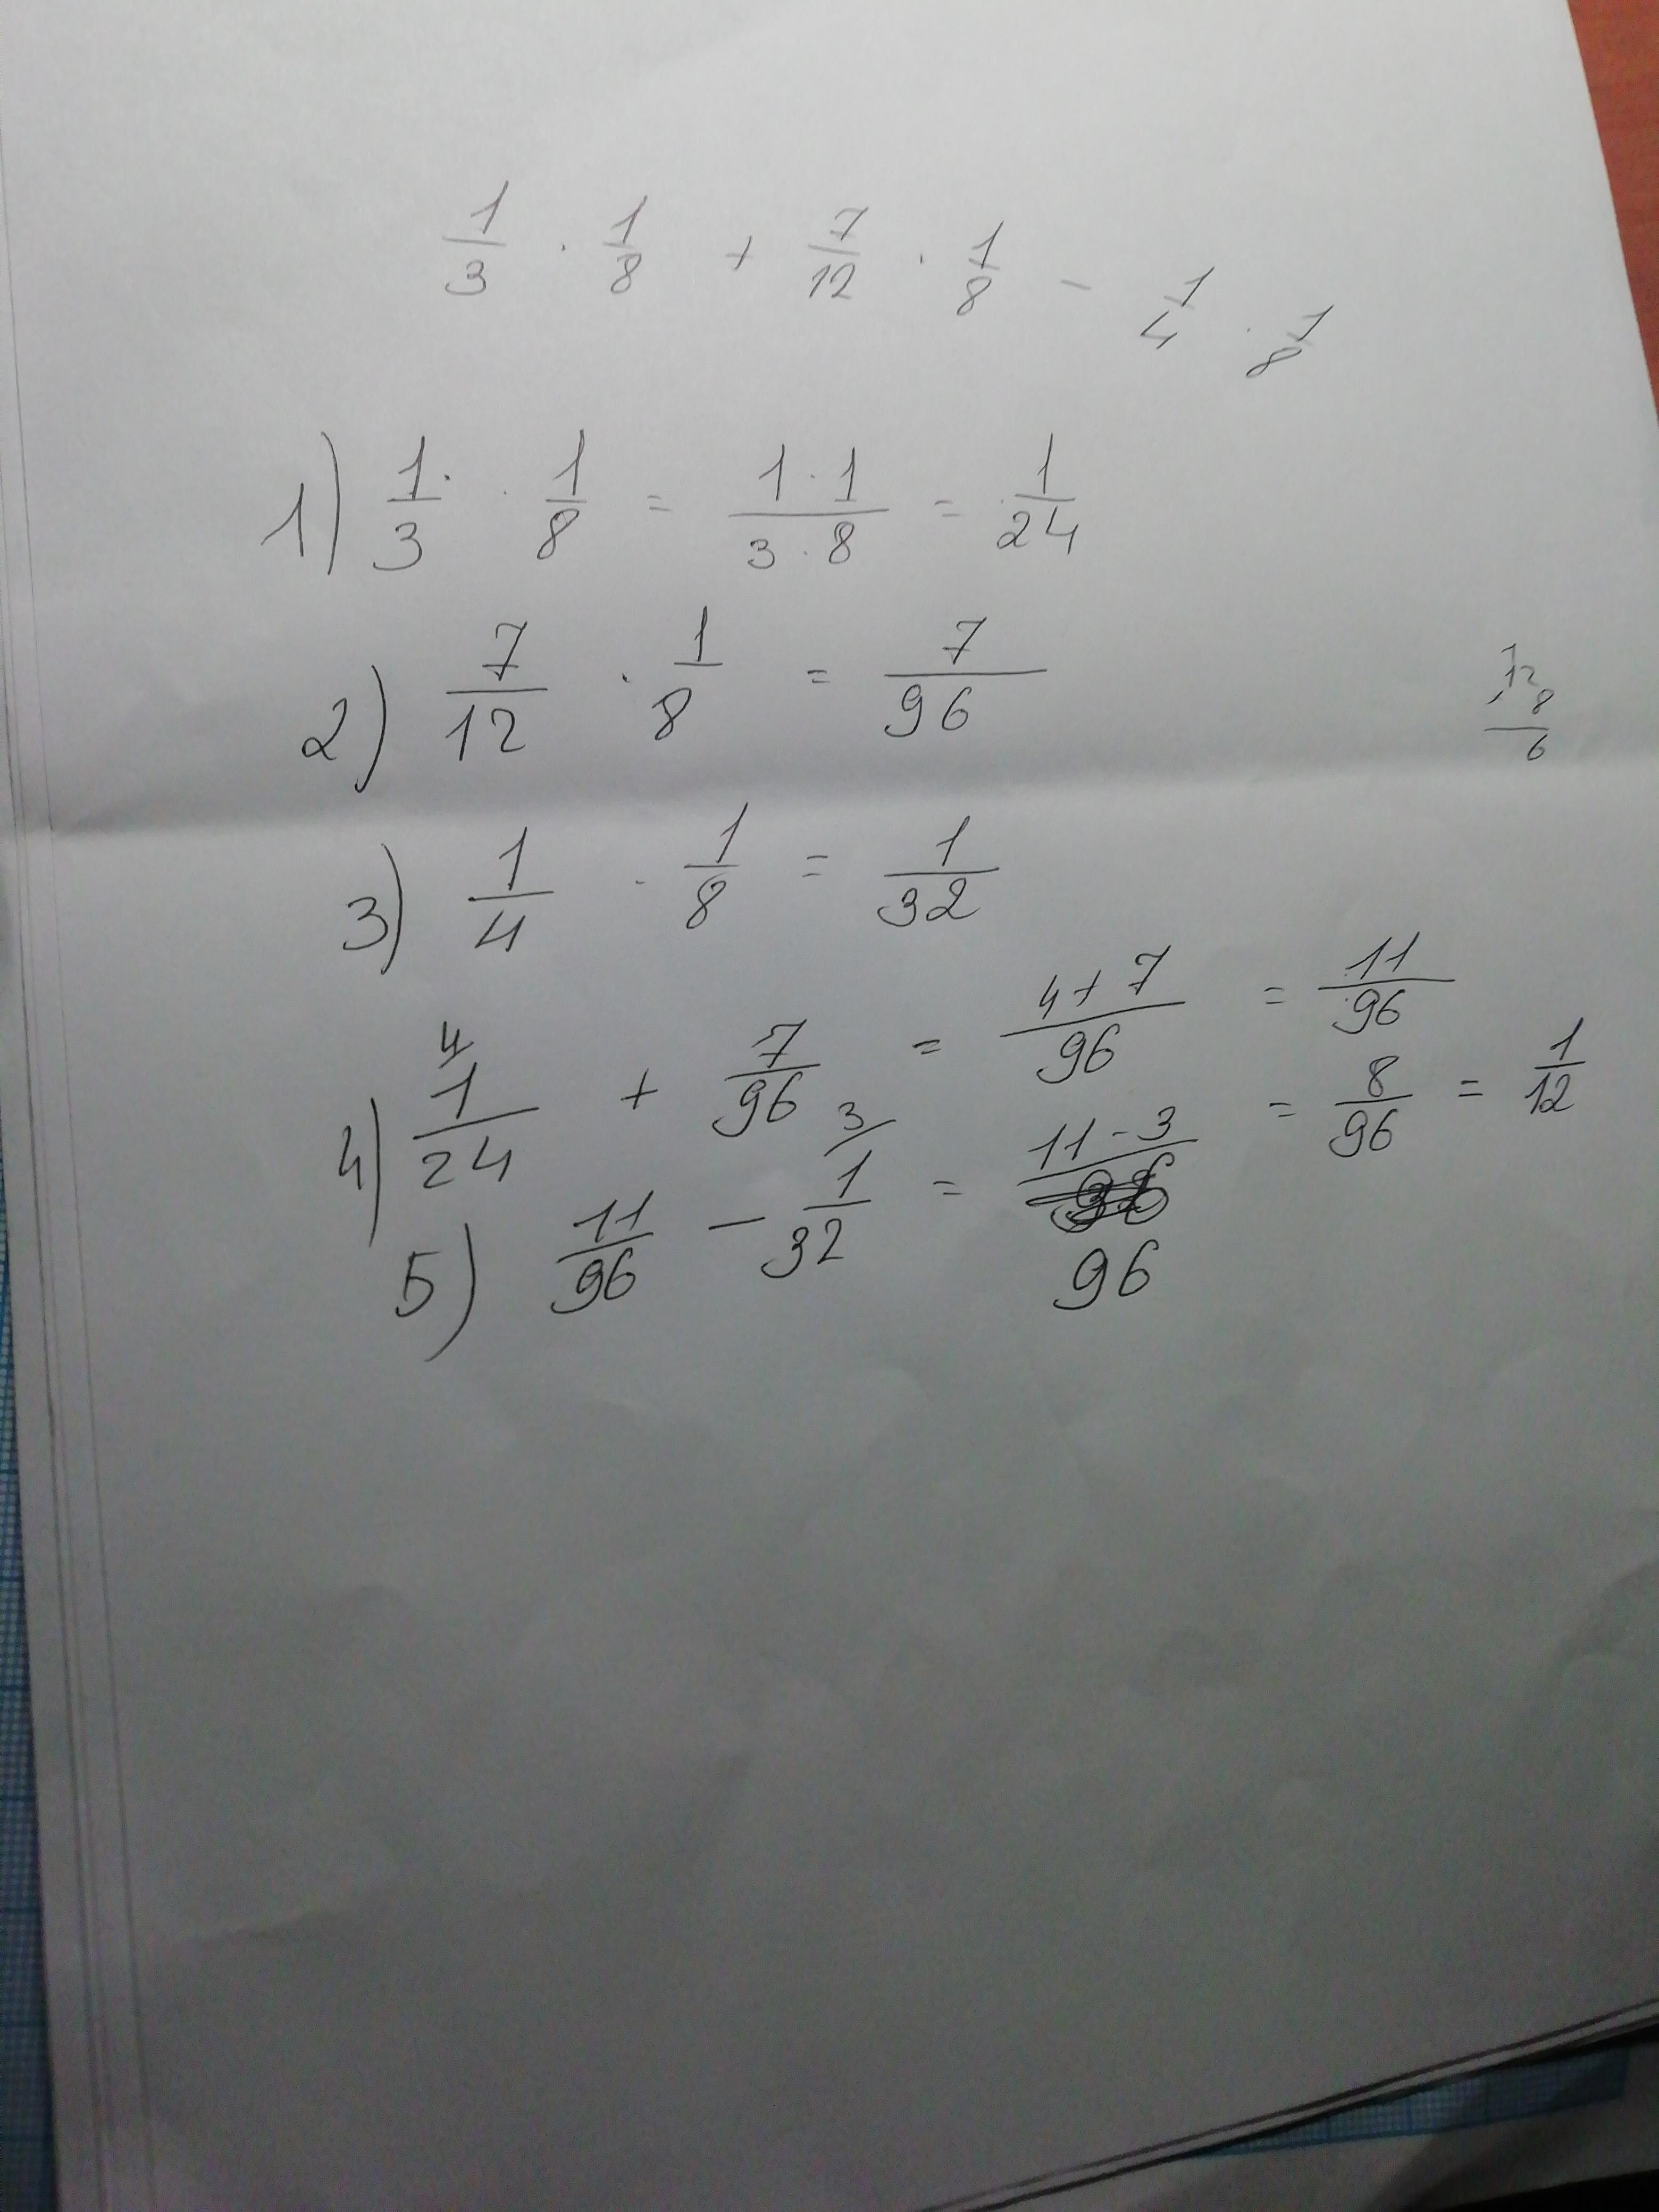 1/3 · 1/8 + 7/12 · 1/8 - 1/4 · 1/8
1) 1/3 · 1/8 = 1·1/3·8 = 1/24
2) 7/12 · 1/8 = 7/96
12
8
6
3) 1/4 · 1/8 = 1/32
4) 4/ 1/24 + 7/96 = 4+7/96 = 11/96
5) 11/96 - 3/ 1/32 = 11-3/96 = 8/96 = 1/12